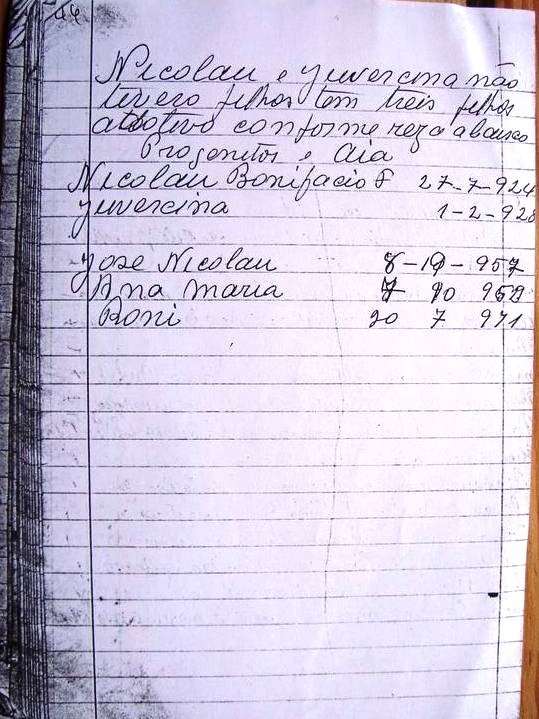 44
Nicolau e Juvercina não
tivero filhos tem treis filhos
adotivo conforme reza abaixo
Progenitor e Aia
Nicolau Bonifacio F 27-7-924
Juvercina 1-2-928
Jose Nicolau 8-10-957
Ana maria 7 10 962
Roni 20 7 971